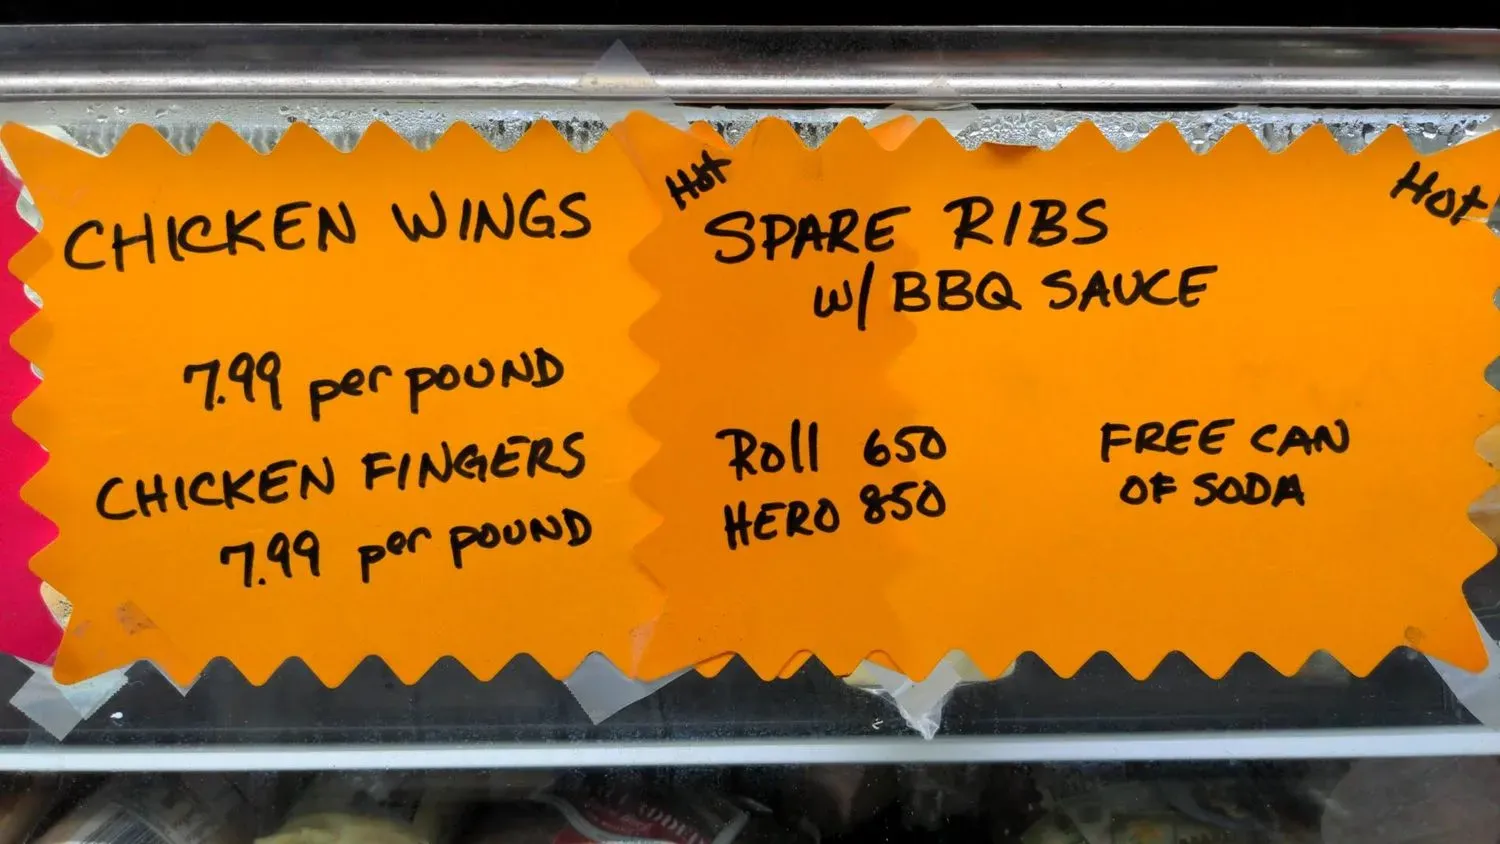 CHICKEN WINGS
7.99 per POUND
CHICKEN FINGERS
7.99 per POUND
Hot
SPARE RIBS
w/ BBQ SAUCE
Hot
Roll 650
HERO 850
FREE CAN
OF SODA